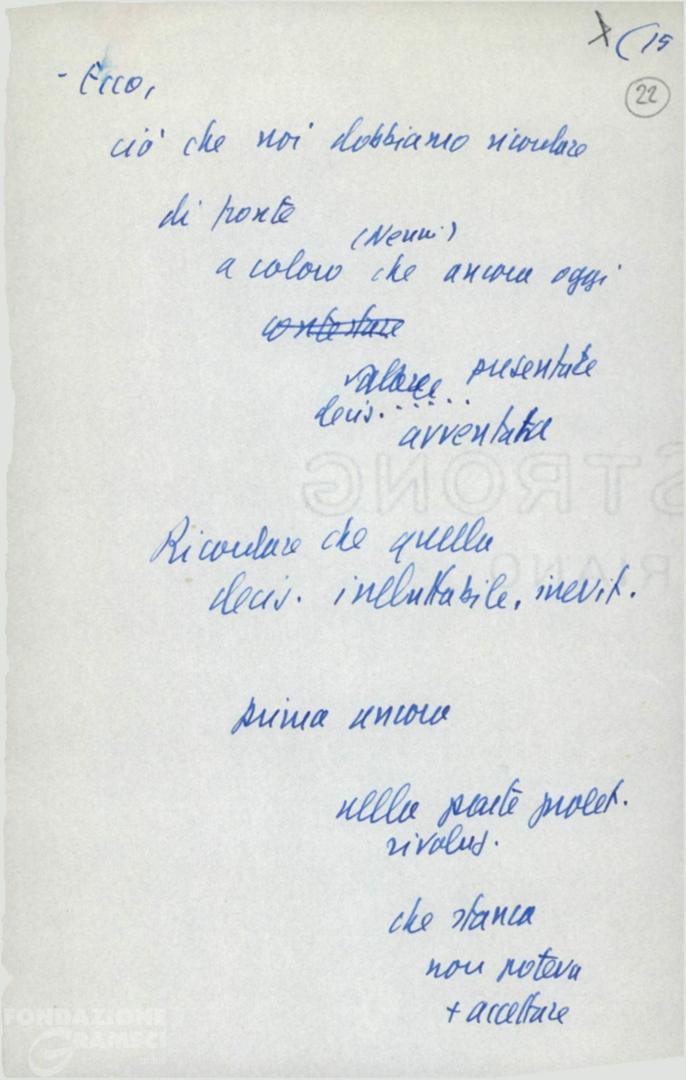 X (19
22
- Ecco,
ciò che noi dobbiamo ricordare
di fronte
(Nenni)
a coloro che ancora oggi
contestare
valore presentate
decis. . . . . .
avventata
STRONG
RIANO
Ricordare che quella
decis. ineluttabile, inevit.
prima ancora
nella parte prolet.
rivoluz.
che stanca
non poteva
+ accettare
FONDAZIONE
GRAMSCI